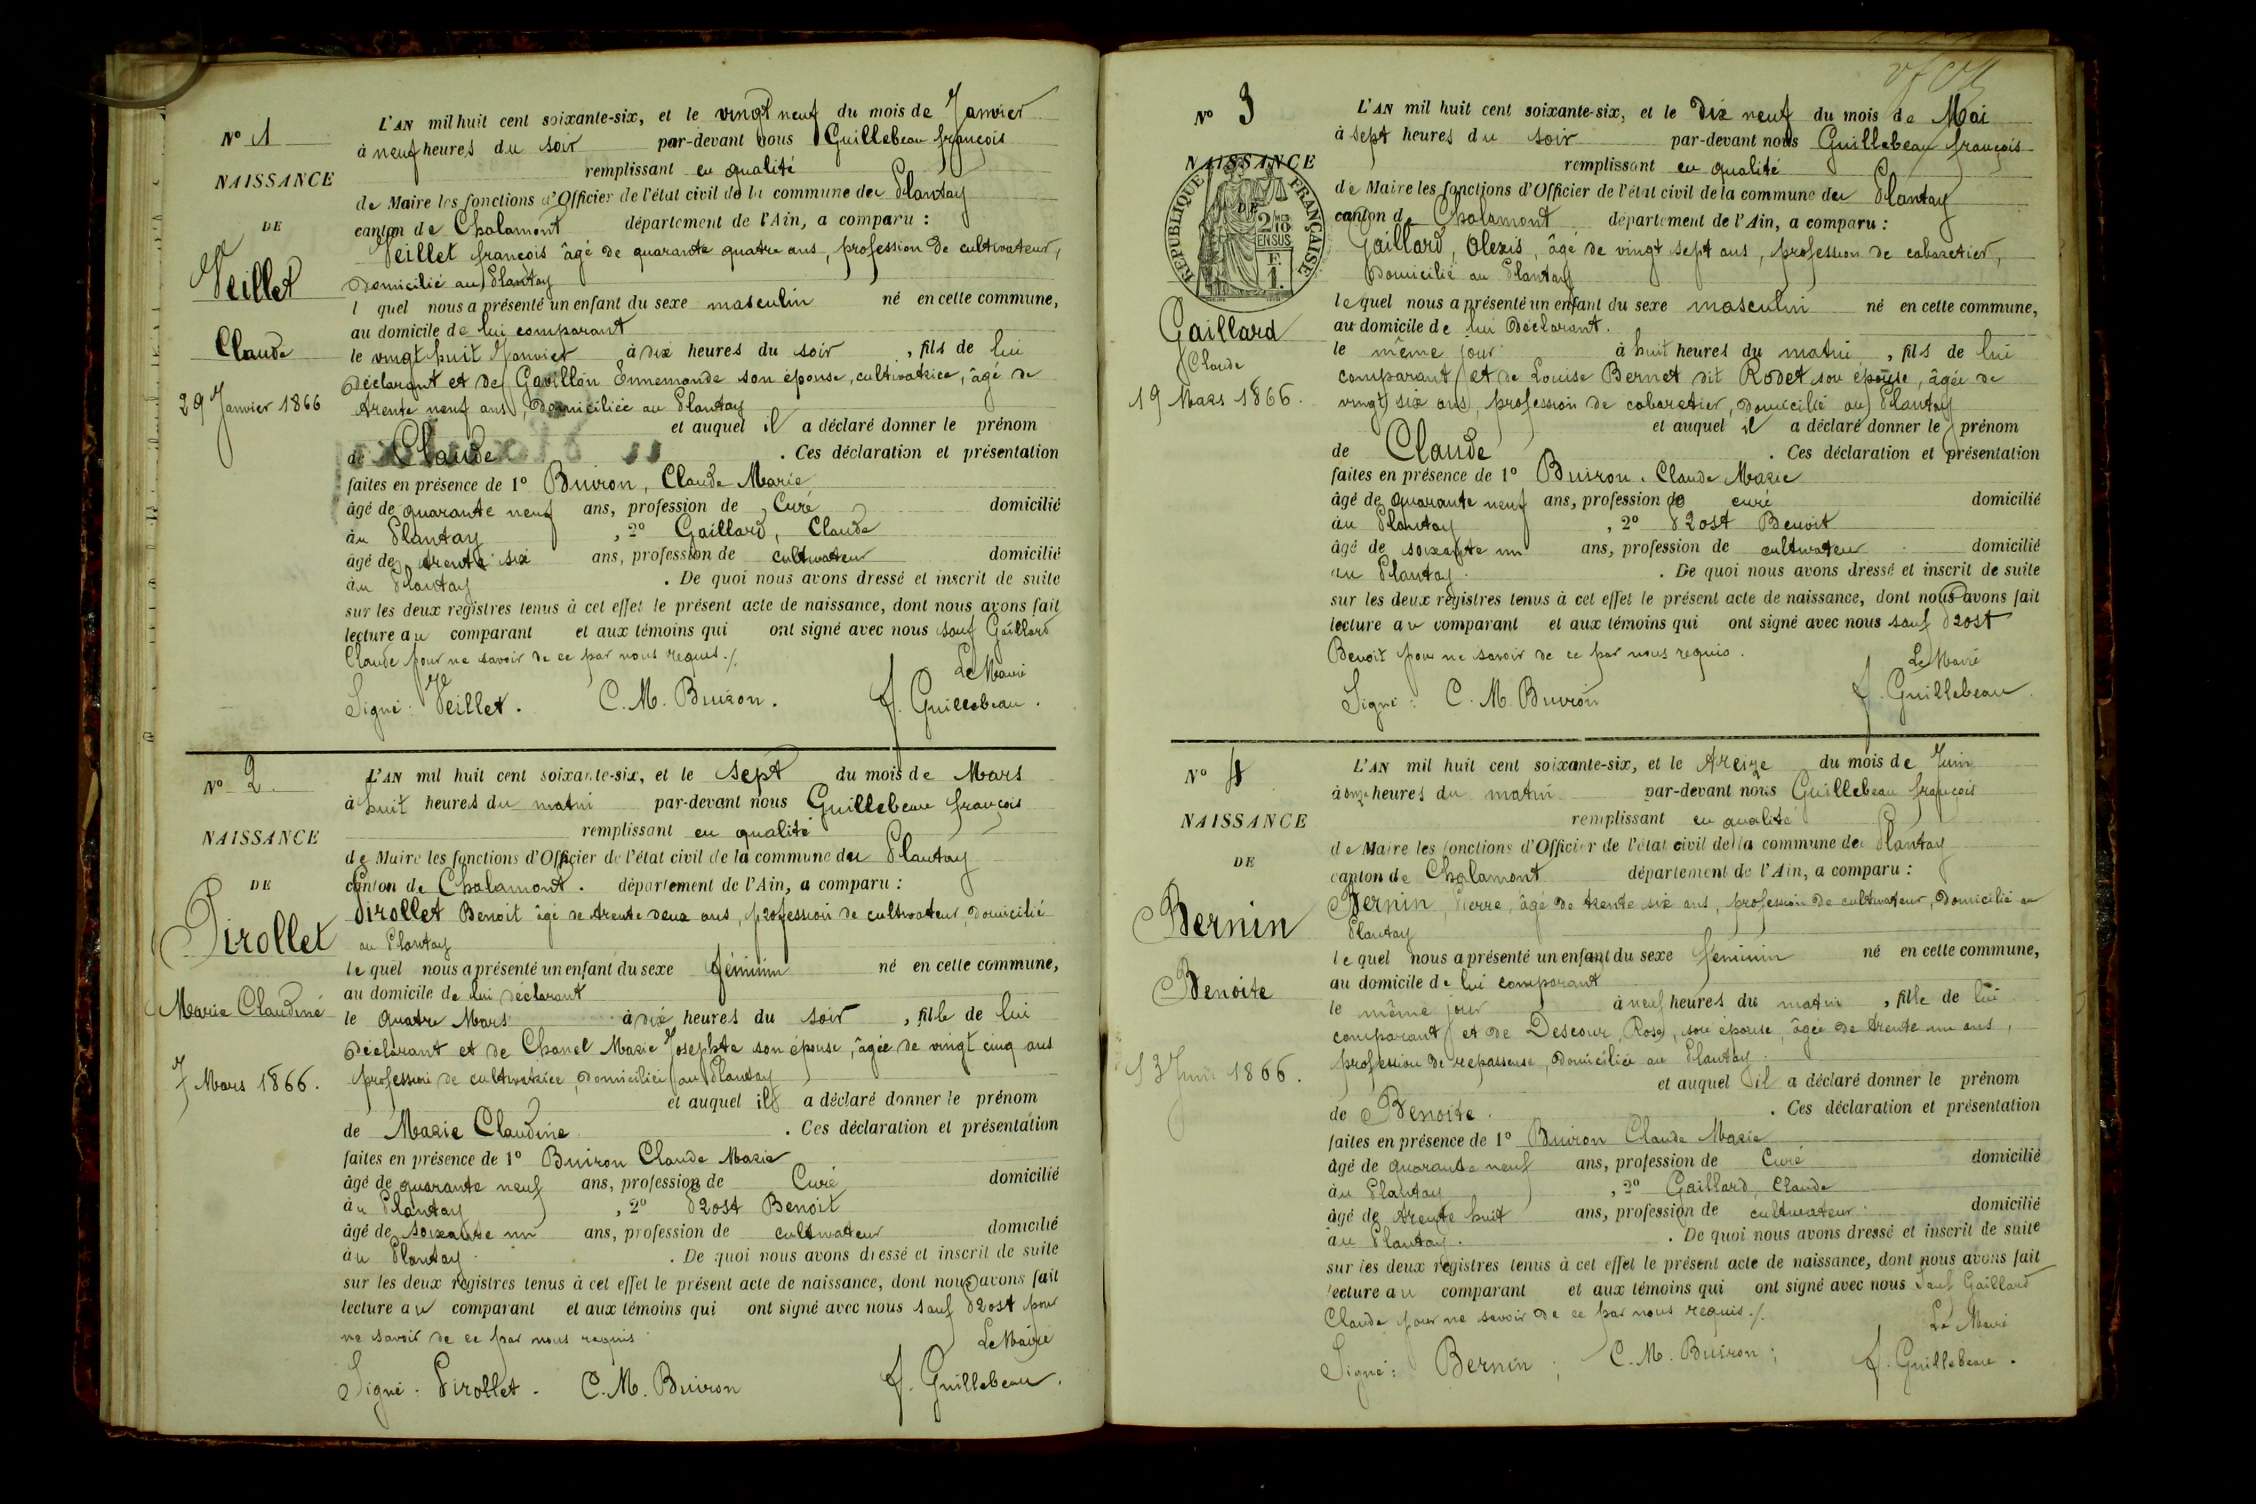 N° 1
NAISSANCE
DE
Veillet
Claude
29 Janvier 1866
L'AN mil huit cent soixante-six, et le vingt neuf du mois de Janvier
à neuf heures du soir par-devant nous Guillebeau françois
remplissant en qualité
de Maire les fonctions d'Officier de l'état civil de la commune du Plantay
canton de Chalamont département de l'Ain, a comparu :
Veillet françois âgé de quarante quatre ans, profession de cultivateur,
domicilié au Plantay
l quel nous a présenté un enfant du sexe masculin né en cette commune,
au domicile de lui comparant
le vingt huit Janvier à dix heures du soir, fils de lui
déclarant et de Gavillon Ennemonde son épouse, cultivatrice, âgé de
trente neuf ans, domiciliée au Plantay
et auquel il a déclaré donner le prénom
de Claude. Ces déclaration et présentation
faites en présence de 1° Buiron, Claude Marie
âgé de quarante neuf ans, profession de Curé domicilié
au Plantay, 2° Gaillard, Claude
âgé de trente six ans, profession de cultivateur domicilié
au Plantay. De quoi nous avons dressé et inscrit de suite
sur les deux registres tenus à cet effet le présent acte de naissance, dont nous avons fait
lecture au comparant et aux témoins qui ont signé avec nous sauf Gaillard
Claude pour ne savoir de ce par nous requis./.
Le Maire
Signé : Veillet. C. M. Buiron. f. Guillebeau.
N° 2
NAISSANCE
DE
Pirollet
Marie Claudine
7 Mars 1866.
L'AN mil huit cent soixante-six, et le sept du mois de Mars
à huit heures du matin par-devant nous Guillebeau françois
remplissant en qualité
de Maire les fonctions d'Officier de l'état civil de la commune du Plantay
canton de Chalamont. département de l'Ain, a comparu :
Pirollet Benoit âgé de trente deux ans, profession de cultivateur, domicilié
au Plantay
le quel nous a présenté un enfant du sexe féminin né en cette commune,
au domicile de lui déclarant
le quatre Mars à dix heures du soir, fille de lui
déclarant et de Chanel Marie Josephte son épouse, âgée de vingt cinq ans
profession de cultivatrice, domiciliée au Plantay
et auquel il a déclaré donner le prénom
de Marie Claudine. Ces déclaration et présentation
faites en présence de 1° Buiron Claude Marie
âgé de quarante neuf ans, profession de Curé domicilié
au Plantay, 2° Prost Benoit
âgé de soixante un ans, profession de cultivateur domicilié
au Plantay. De quoi nous avons dressé et inscrit de suite
sur les deux registres tenus à cet effet le présent acte de naissance, dont nous avons fait
lecture au comparant et aux témoins qui ont signé avec nous sauf Prost pour
ne savoir de ce par nous requis
Le Maire
Signé. Pirollet. C. M. Buiron f. Guillebeau.
N° 3
NAISSANCE
DE
RÉPUBLIQUE FRANÇAISE
2/10 EN SUS
F. 1.
Gaillard
Claude
19 Mars 1866.
L'AN mil huit cent soixante-six, et le dix neuf du mois de Mai
à sept heures du soir par-devant nous Guillebeau françois
remplissant en qualité
de Maire les fonctions d'Officier de l'état civil de la commune du Plantay
canton de Chalamont département de l'Ain, a comparu :
Gaillard, Alexis, âgé de vingt sept ans, profession de cabaretier,
domicilié au Plantay
le quel nous a présenté un enfant du sexe masculin né en cette commune,
au domicile de lui déclarant.
le même jour à huit heures du matin, fils de lui
comparant et de Louise Bernet dit Rodet son épouse, âgée de
vingt six ans, profession de cabaretier, domicilié au Plantay
et auquel il a déclaré donner le prénom
de Claude. Ces déclaration et présentation
faites en présence de 1° Buiron. Claude Marie
âgé de quarante neuf ans, profession de curé domicilié
au Plantay, 2° Prost Benoit
âgé de soixante un ans, profession de cultivateur domicilié
au Plantay. De quoi nous avons dressé et inscrit de suite
sur les deux registres tenus à cet effet le présent acte de naissance, dont nous avons fait
lecture au comparant et aux témoins qui ont signé avec nous sauf Prost
Benoit pour ne savoir de ce par nous requis.
Le Maire
Signé : C. M. Buiron f. Guillebeau.
N° 4
NAISSANCE
DE
Bernin
Benoite
13 Juin 1866.
L'AN mil huit cent soixante-six, et le treize du mois de Juin
à onze heures du matin par-devant nous Guillebeau françois
remplissant en qualité
de Maire les fonctions d'Officier de l'état civil de la commune du Plantay
canton de Chalamont département de l'Ain, a comparu :
Bernin, Pierre, âgé de trente six ans, profession de cultivateur, domicilié au
Plantay
le quel nous a présenté un enfant du sexe féminin né en cette commune,
au domicile de lui comparant
le même jour à neuf heures du matin, fille de lui
comparant et de Descour, Rose, son épouse, âgée de trente un ans,
profession de repasseuse, domiciliée au Plantay.
et auquel il a déclaré donner le prénom
de Benoite. Ces déclaration et présentation
faites en présence de 1° Buiron Claude Marie
âgé de quarante neuf ans, profession de Curé domicilié
au Plantay, 2° Gaillard, Claude
âgé de trente huit ans, profession de cultivateur. domicilié
au Plantay. De quoi nous avons dressé et inscrit de suite
sur les deux registres tenus à cet effet le présent acte de naissance, dont nous avons fait
lecture au comparant et aux témoins qui ont signé avec nous Sauf Gaillard
Claude pour ne savoir de ce par nous requis./.
Le Maire
Signé : Bernin ; C. M. Buiron ; f. Guillebeau.